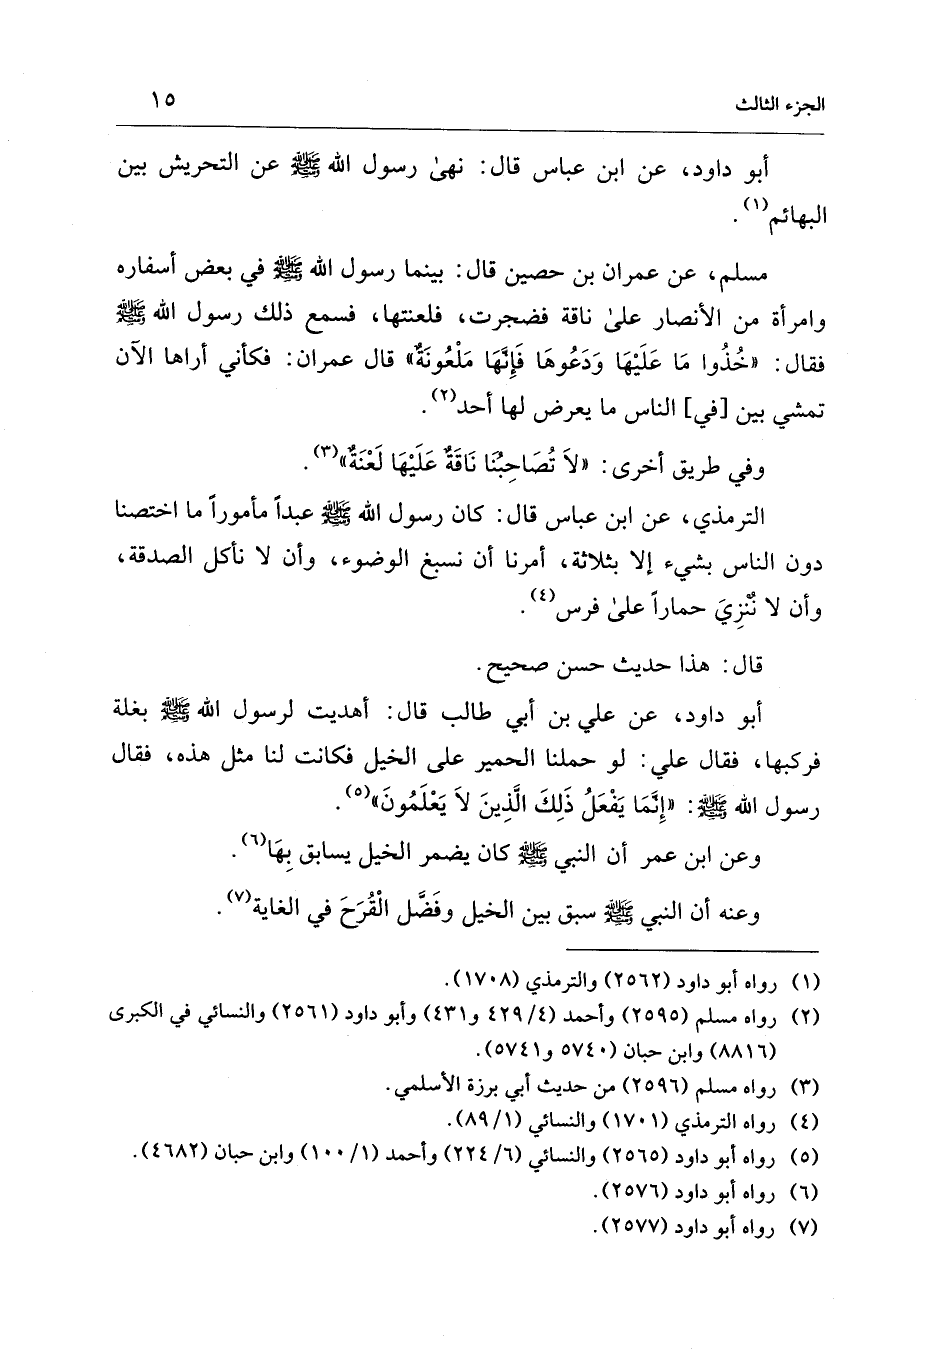 الجزء الثالث ١٥
أبو داود، عن ابن عباس قال: نهىٰ رسول الله ﷺ عن التحريش بين
البهائم(١).
مسلم، عن عمران بن حصين قال: بينما رسول الله ﷺ في بعض أسفاره
وامرأة من الأنصار علىٰ ناقة فضجرت، فلعنتها، فسمع ذلك رسول الله ﷺ
فقال: «خُذُوا مَا عَلَيْهَا وَدَعُوهَا فَإِنَّهَا مَلْعُونَةٌ» قال عمران: فكأني أراها الآن
تمشي بين [في] الناس ما يعرض لها أحد(٢).
وفي طريق أخرى: «لاَ تُصَاحِبُنَا نَاقَةٌ عَلَيْهَا لَعْنَةٌ»(٣).
الترمذي، عن ابن عباس قال: كان رسول الله ﷺ عبداً مأموراً ما اختصنا
دون الناس بشيء إلا بثلاثة، أمرنا أن نسبغ الوضوء، وأن لا نأكل الصدقة،
وأن لا نُنْزِيَ حماراً علىٰ فرس(٤).
قال: هذا حديث حسن صحيح.
أبو داود، عن علي بن أبي طالب قال: أهديت لرسول الله ﷺ بغلة
فركبها، فقال علي: لو حملنا الحمير على الخيل فكانت لنا مثل هذه، فقال
رسول الله ﷺ: «إِنَّمَا يَفْعَلُ ذَلِكَ الَّذِينَ لاَ يَعْلَمُونَ»(٥).
وعن ابن عمر أن النبي ﷺ كان يضمر الخيل يسابق بِهَا(٦).
وعنه أن النبي ﷺ سبق بين الخيل وفَضَّل الْقُرَحَ في الغاية(٧).
(١) رواه أبو داود (٢٥٦٢) والترمذي (١٧٠٨).
(٢) رواه مسلم (٢٥٩٥) وأحمد (٤/ ٤٢٩ و٤٣١) وأبو داود (٢٥٦١) والنسائي في الكبرى
(٨٨١٦) وابن حبان (٥٧٤٠ و٥٧٤١).
(٣) رواه مسلم (٢٥٩٦) من حديث أبي برزة الأسلمي.
(٤) رواه الترمذي (١٧٠١) والنسائي (١/ ٨٩).
(٥) رواه أبو داود (٢٥٦٥) والنسائي (٦/ ٢٢٤) وأحمد (١/ ١٠٠) وابن حبان (٤٦٨٢).
(٦) رواه أبو داود (٢٥٧٦).
(٧) رواه أبو داود (٢٥٧٧).